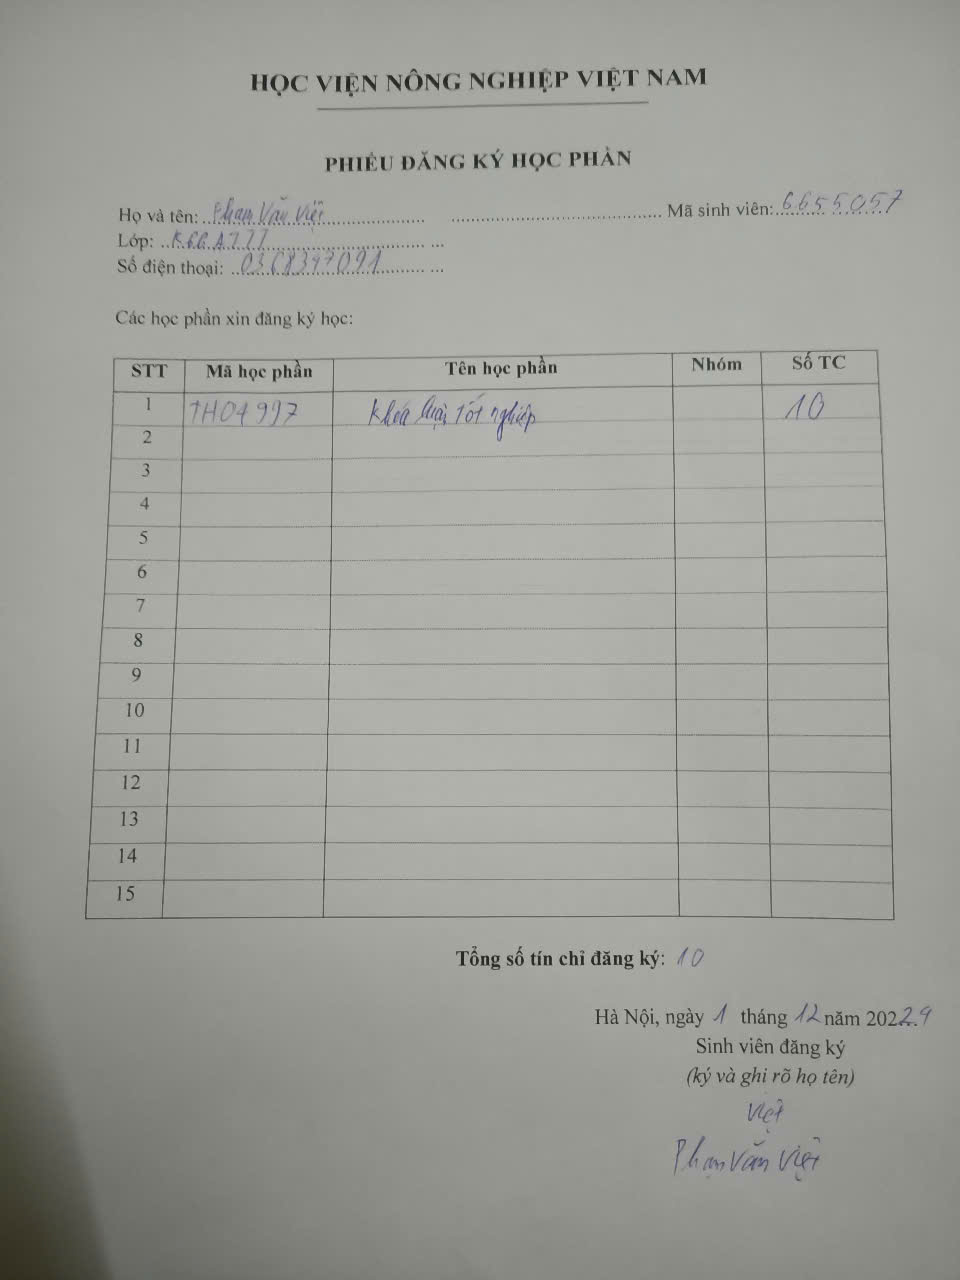 HỌC VIỆN NÔNG NGHIỆP VIỆT NAM
PHIẾU ĐĂNG KÝ HỌC PHẦN
Họ và tên: Phạm Văn Việt Mã sinh viên: 6655057
Lớp:
Số điện thoại: 0368397091
Các học phần xin đăng ký học:
STT Mã học phần Tên học phần Nhóm Số TC
1 TH04997 Khóa luận tốt nghiệp 10
2
3
4
5
6
7
8
9
10
11
12
13
14
15
Tổng số tín chỉ đăng ký: 10
Hà Nội, ngày 1 tháng 12 năm 202
Sinh viên đăng ký
(ký và ghi rõ họ tên)
Việt
Phạm Văn Việt